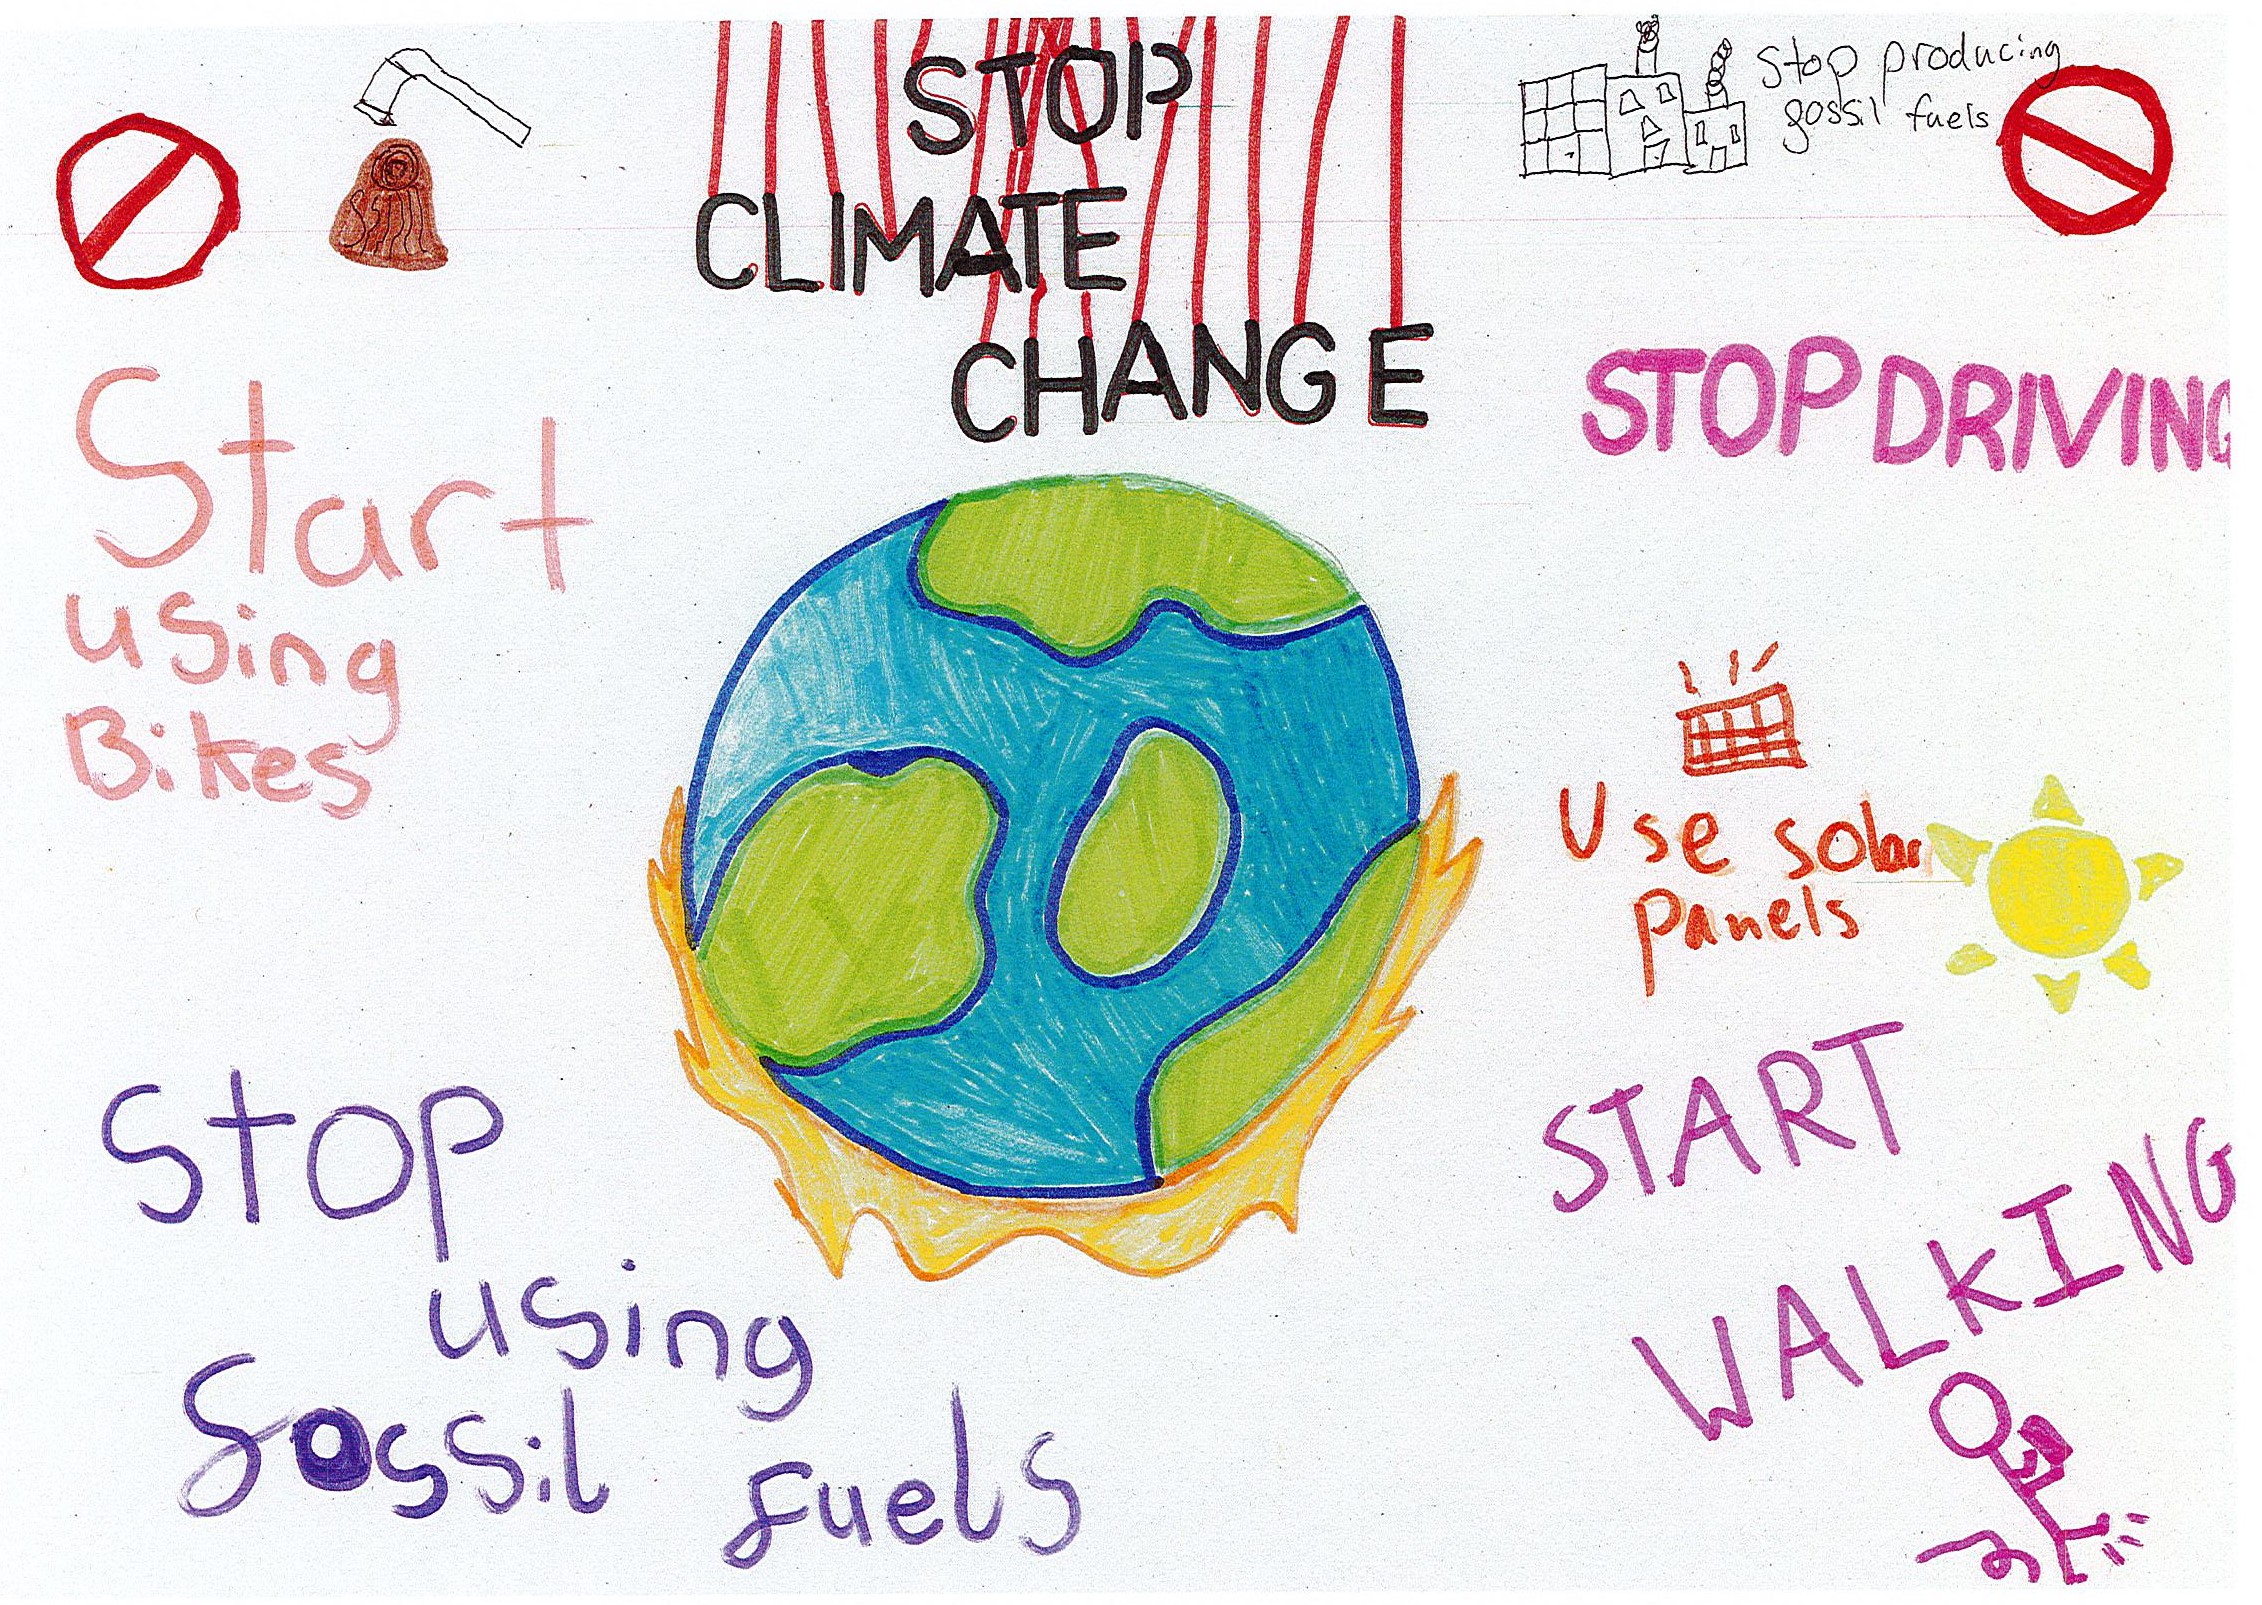 STOP
CLIMATE
CHANGE
Stop producing
fossil fuels
Start
using
Bikes
STOP DRIVING
Use solar
panels
START
WALKING
Stop
using
fossil fuels